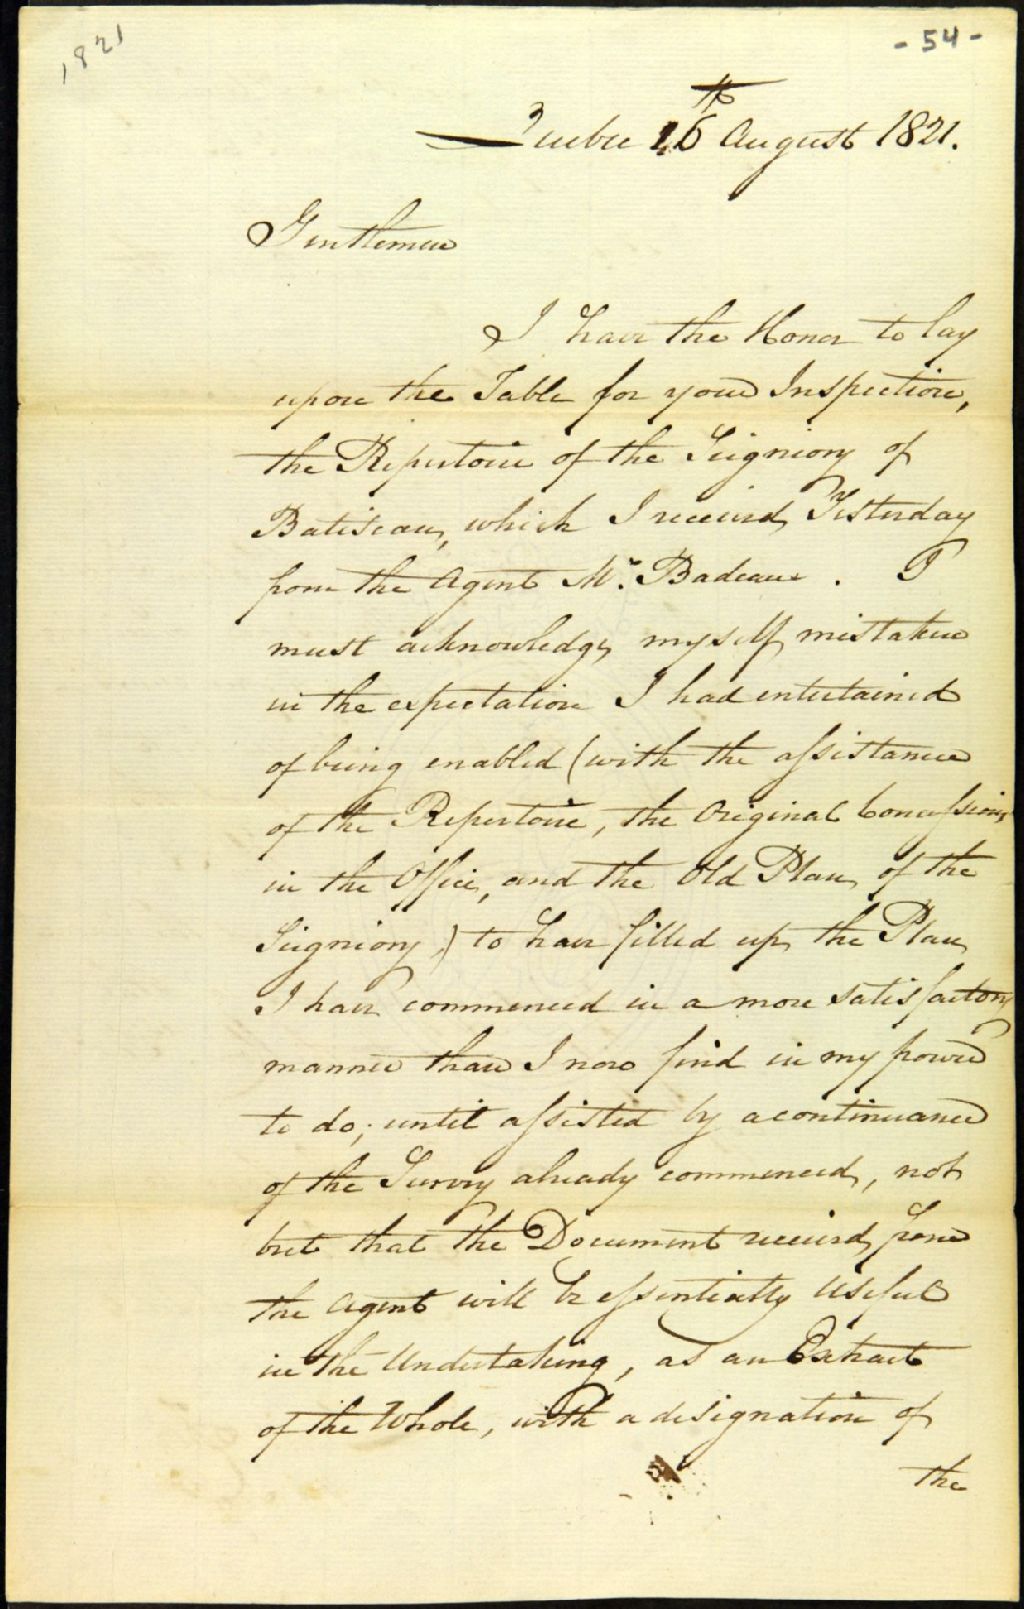 1821
- 54 -
Quebec 16th August 1821.
Gentlemen
I have the Honor to lay
upon the Table for your Inspection,
the Repertoire of the Seigniory of
Batiscan, which I received Yesterday
from the Agent Mr. Badeaux. I
must acknowledge myself mistaken
in the expectation I had entertained
of being enabled (with the assistance
of the Repertoire, the Original Concessions
in the Office, and the Old Plan of the
Seigniory,) to have filled up the Plan
I have commenced in a more satisfactory
manner than I now find in my power
to do; until assisted by a continuance
of the Survey already commenced, not
but that the Document received from
the Agent will be essentially Useful
in the Undertaking, as an Extract
of the Whole, with a designation of
the